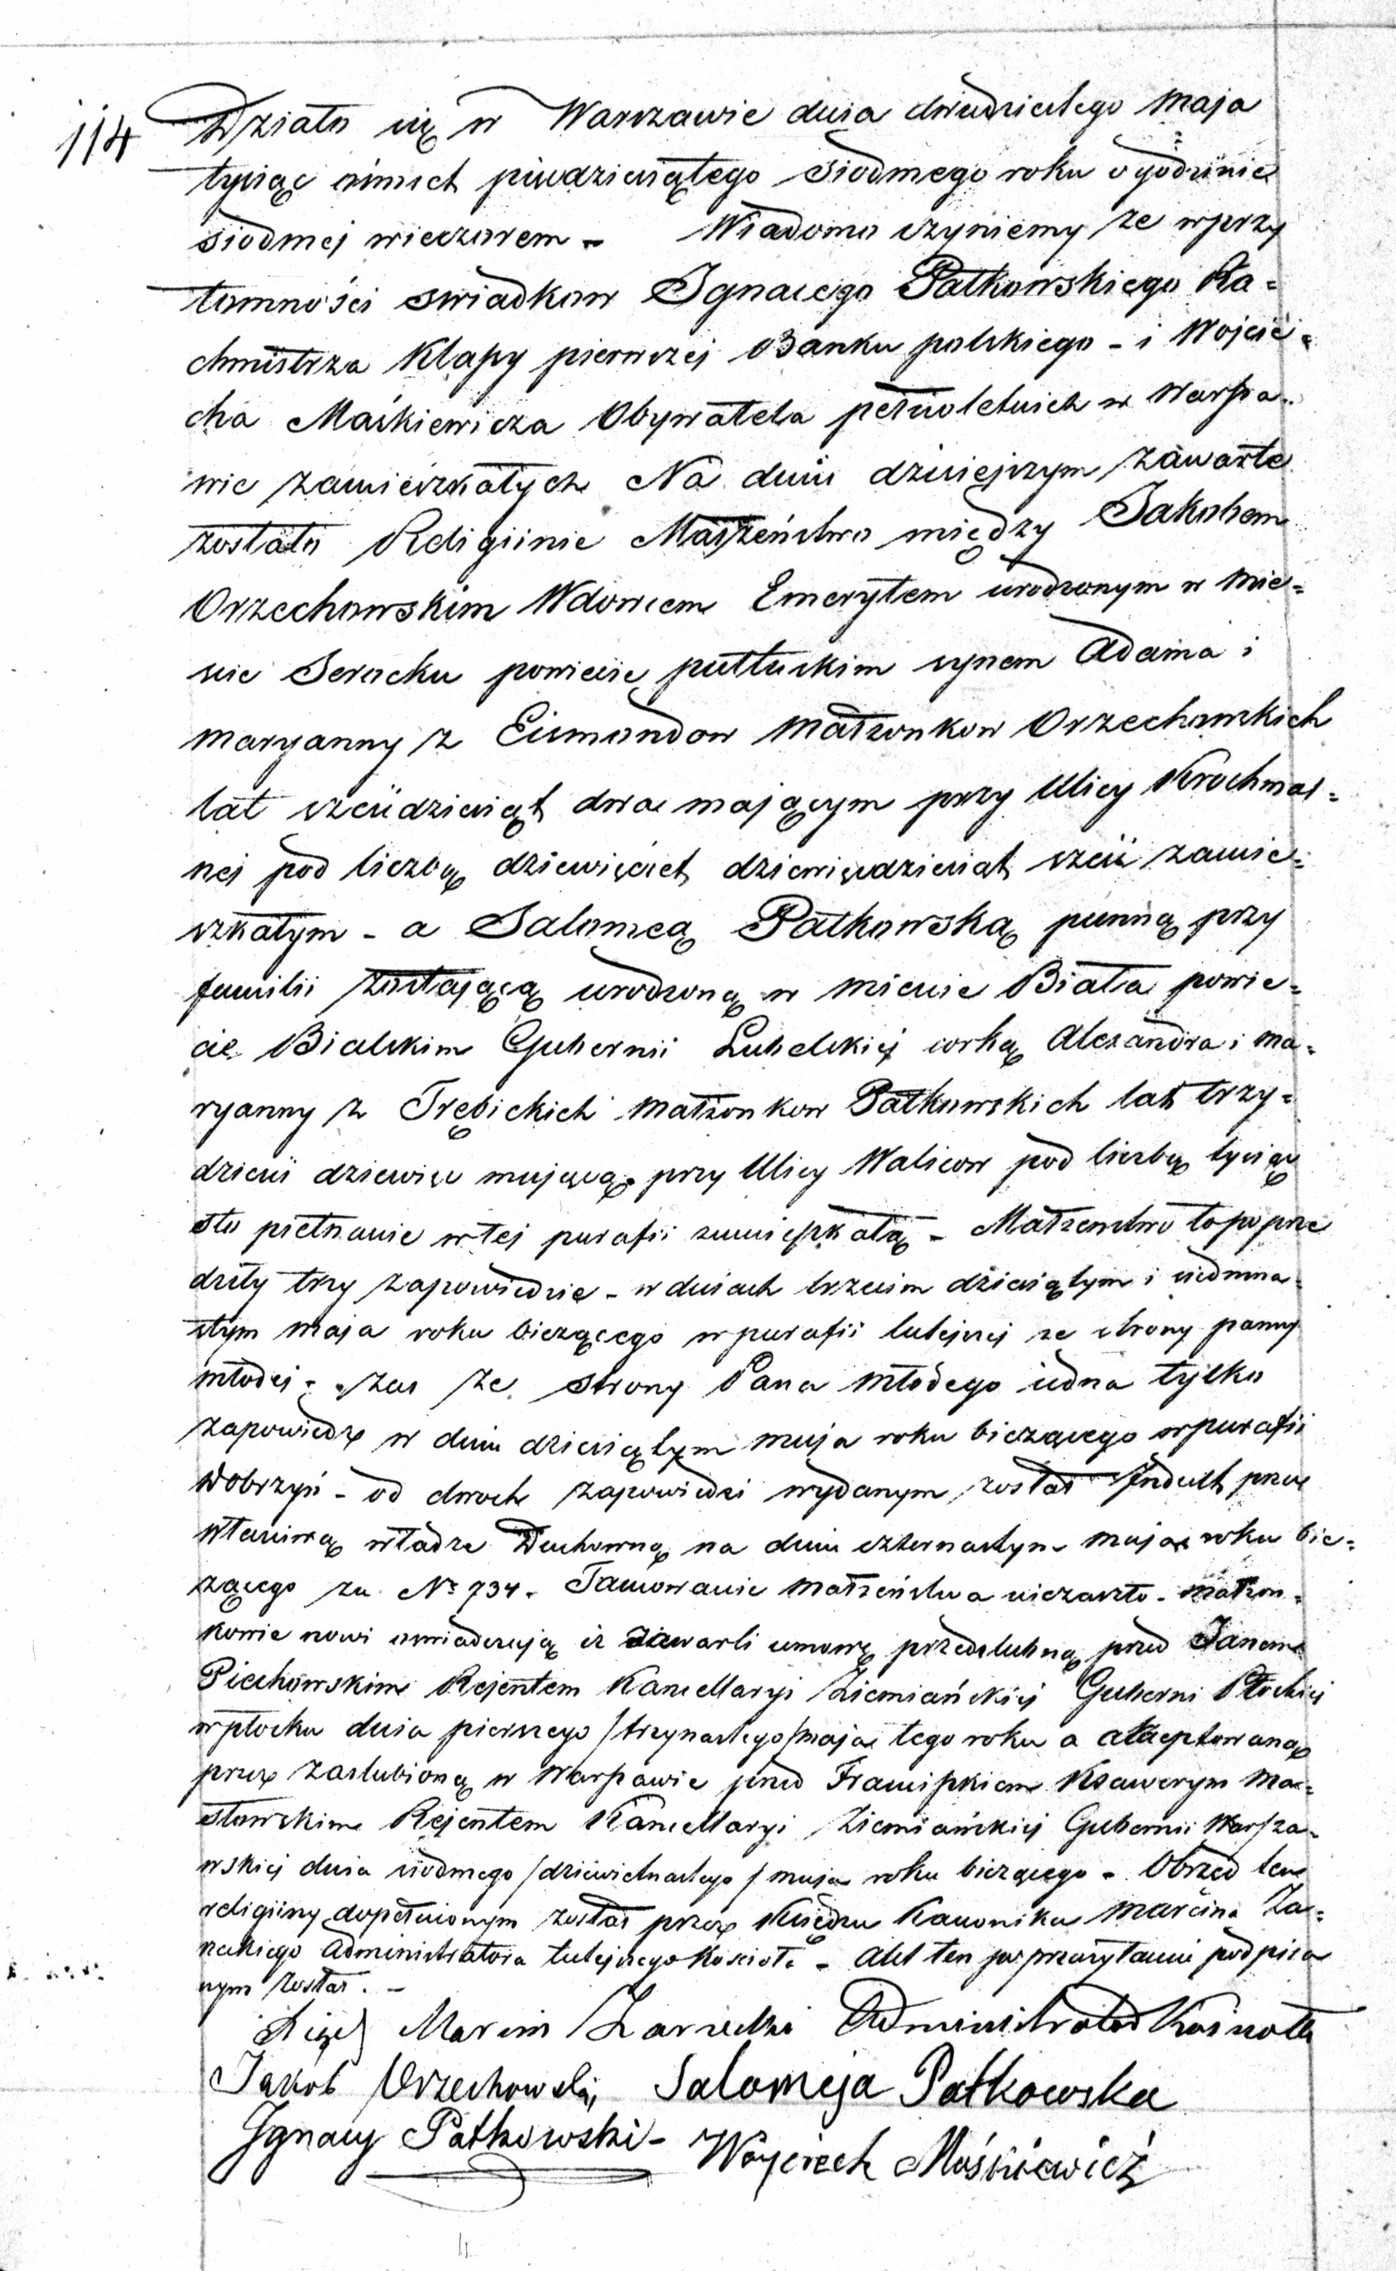 114
Działo się w Warszawie dnia dwudziestego Maja
tysiąc ośmset piędziesiątego Siódmego roku o godzinie
siodmej wieczorem - Wiadomo czyniemy że w przy
tomności swiadkow Ignacego Patkowskiego Ra=
chmistrza Klassy pierwszej Banku polskiego - i Wojcie=
cha Maśkiewicza Obywatela pełnoletnich w Warsza=
wie zamieszkałych Na dniu dzisiejszym zawarte
zostało Religiinie Małżeństwo między Jakobem
Orzechowskim Wdowcem Emerytem urodzonym w mie=
scie Serocku powiecie pułtuskim synem Adama i
Maryanny z Eismondow Małżonkow Orzechowskich
lat sześćdziesiąt dwa mającym przy Ulicy Krochmal=
nej pod liczbą dziewięćset dziewięćdziesiąt sześć zamie=
szkałym - a Salomeą Patkowską panną przy
familii zostającą urodzoną w mieście Biała powie=
cie Bialskim Gubernii Lubelskiej corką Alexandra i Ma=
ryanny z Trębickich Małżonkow Patkowskich lat trzy=
dzieści dziewięć mającą przy Ulicy Walicow pod liczbą tysiąc
sto pietnaście w tej parafii zamieszkałą - Małżeństwo to poprze
dziły trzy zapowiedzie - w dniach trzecim dziesiątym i siedmna=
stym maja roku bieżącego w parafii tutejszej ze strony panny
młodej - zas ze strony Pana młodego jedna tylko
zapowiedź w dniu dziesiątym maja roku bieżącego w parafii
Dobrzyń - od dwoch zapowiedzi wydanym został Indult przez
własciwą władze Duchowną na dniu czternastym maja roku bie=
żącego za No 734 - Tamowanie małżeństwa niezaszło - Małżon=
kowie nowi oswiadczają iż zawarli umowę przedslubną przed Janem
Piechowskim Rejentem Kancellaryi Ziemiańskiej Guberni Płockiej
w płocku dnia pierwszego /trzynastego/ maja tego roku a akceptowaną
przez zaslubioną w Warszawie przed Franciszkiem Ksawerym Ma=
słowskim Rejentem Kancellaryi Ziemiańskiej Gubernii Warsza=
wskiej dnia siodmego /dziewietnastego/ maja roku bieżącego - Obrzęd ten
religiiny dopełnionym został przez Księdza Kanonika Marcina Za=
rzeckiego Administratora tutejszego Koscioła - Akt ten po przeczytaniu podpisa
nym został. -
Xiądz Marcin Zarzecki Administrator Kościoła
Jakób Orzechowski, Salomeja Patkowska
Ignacy Patkowski - Woyciech Maśkiewicz